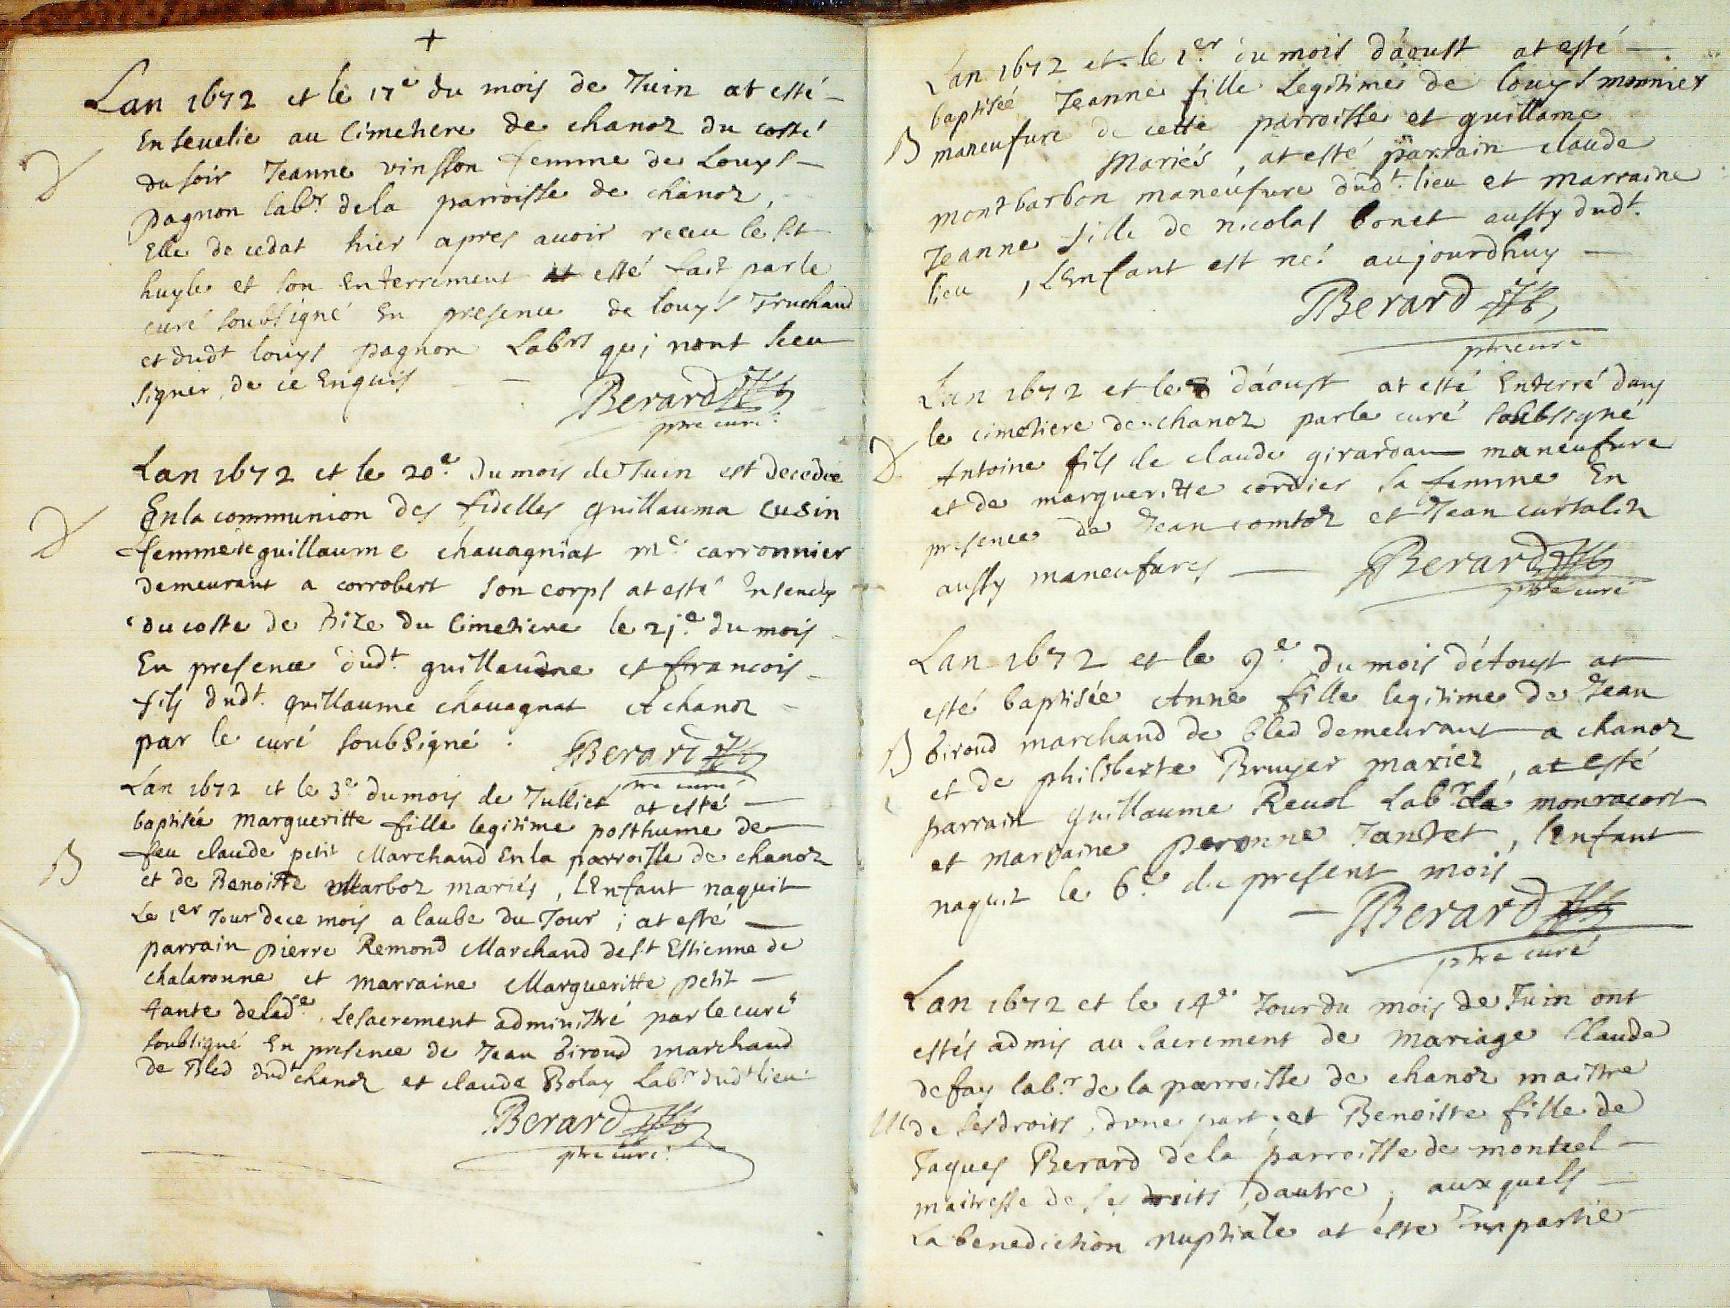 +
Lan 1672 et le 17e du mois de Juin at esté
Ensevelie au Cimetiere de chanoz du costé
D
du soir Jeanne vinsson femme de Louys
pagnon labr. de la parroisse de chanoz,
Elle decedat hier apres avoir receu le st
huyle et son Enterrement at esté fait par le
curé soubsigné En presence de louys Truchaud
et dudt louys pagnon Labrs qui nont sceu
signer de ce Enquis
Berard
ptre curé
Lan 1672 et le 20e. du mois de Juin est decedée
En la communion des fidelles guillauma cusin
D
femme de guillaume chavagniat me carronnier
demeurant a corrobert son corps at esté Ensevely
du costé de bize du Cimetiere le 21e. du mois
En presence dudt. guillaume et francois
fils dudt. guillaume chavagnat A chanoz
par le curé soubsigné.
Berard
ptre curé
Lan 1672 et le 3e du mois de Julliet at esté
baptisée margueritte fille legitime posthume de
feu claude petit Marchand En la parroisse de chanoz
B
et de Benoiste Marboz mariés, lEnfant naquit
Le 1er Jour de ce mois a laube du Jour; at esté
parrain pierre Remond Marchand de st Estienne de
chalaronne et marraine Margueritte petit
tante de lade. Le sacrement administré par le curé
soubsigné En presence de Jean biroud marchand
de Bled dudt chanoz et claude Bolay Labr dudt lieu
Berard
ptre curé
Lan 1672 et le 1er. du mois d'aoust at esté
baptisée Jeanne fille Legitime de louys monnier
B
maneufure de cette parroisse et guillame
Mariés, at esté parrain claude
montbarbon maneufure dudt. lieu et marraine
Jeanne fille de nicolas bonet aussy dudt.
lieu, LEnfant est né aujourdhuy
Berard
ptre curé
Lan 1672 et le 8 d'aoust at esté Enterré dans
le cimetiere de chanoz par le curé soubssigné
D
Antoine fils de claude girardan maneufure
et de margueritte cordier sa femme En
presence de Jean comtoz et Jean curtalin
aussy maneufures
Berard
ptre curé
Lan 1672 et le 9e. du mois d'Aoust at
esté baptisée Anne fille legitime de Jean
B
biroud marchand de Bled demeurant a chanoz
et de philiberte Bruyer mariez, at esté
parrain guillaume Revol Labr. de monracort
et marraine peronne Jantet, lEnfant
naquit le 6e. du present mois
Berard
ptre curé
Lan 1672 et le 14e. Jour du mois de Juin ont
estés admis au Sacrement de Mariage Claude
defay labr. de la parroisse de chanoz maistre
M
de ses droits, dune part; et Benoiste fille de
Jaques Berard de la parroisse de montcel
maitresse de ses droits, d'autre, auxquels
La benediction nuptiale at esté Impartie